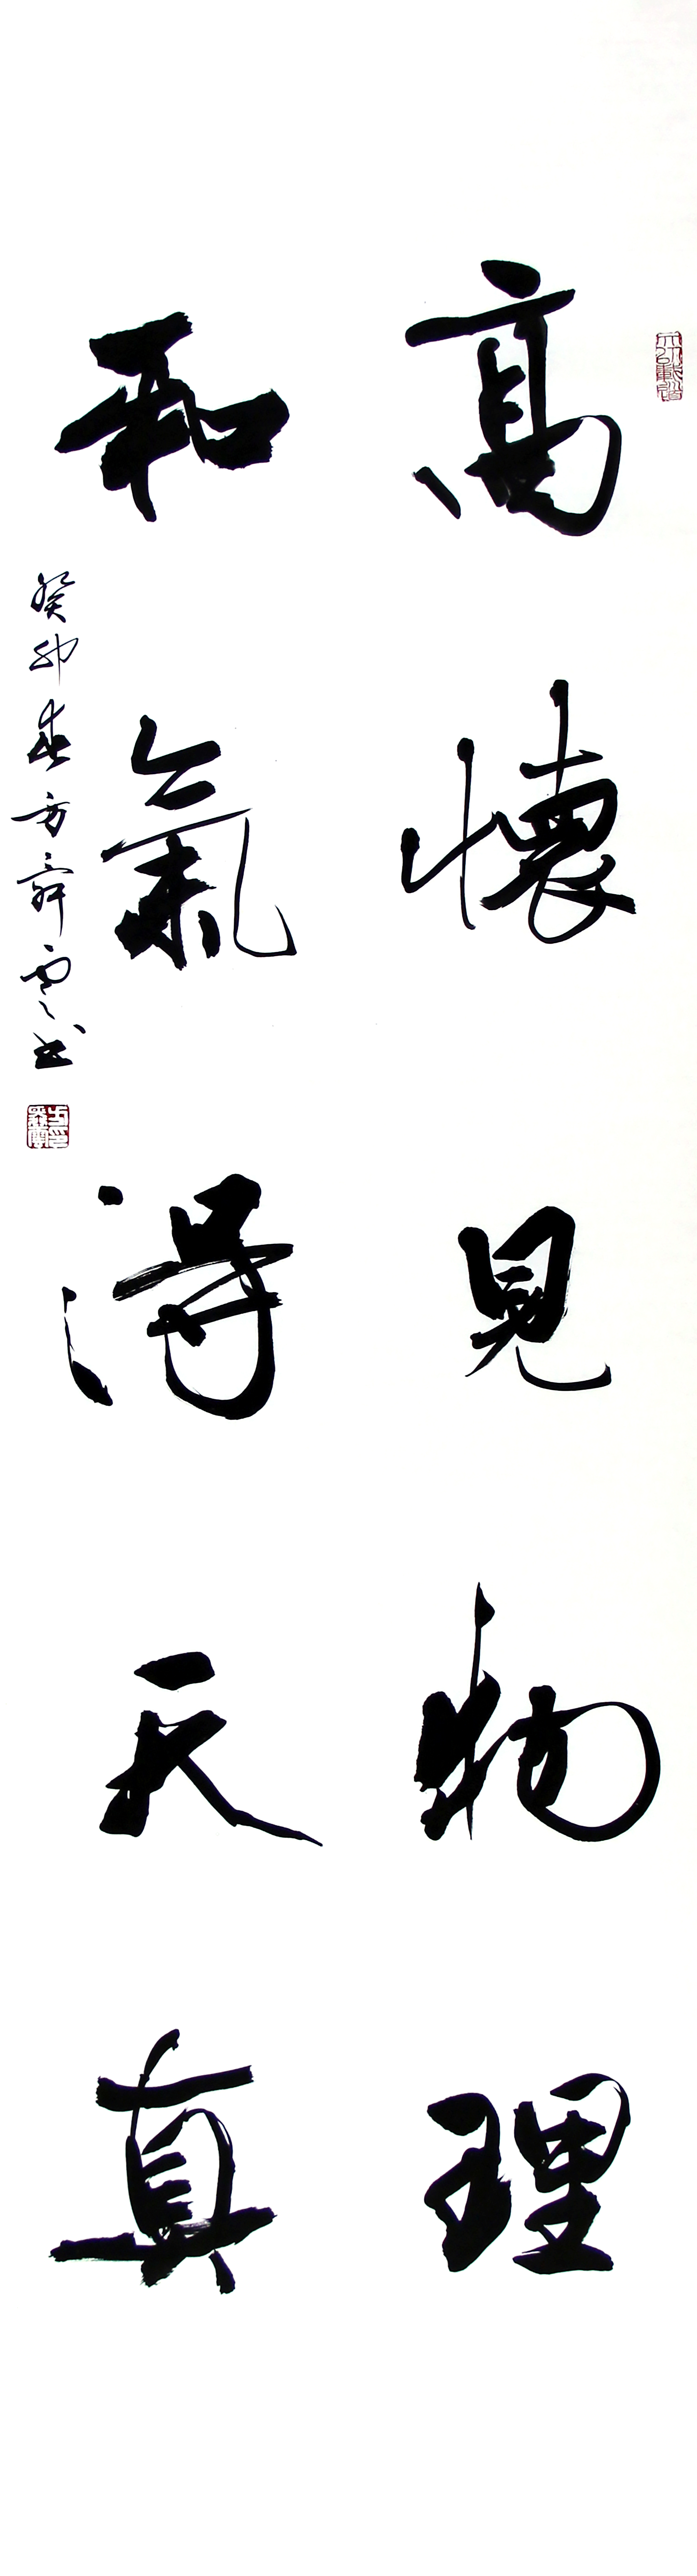 高懷見物理
和氣得天真
癸卯春方舜雲書